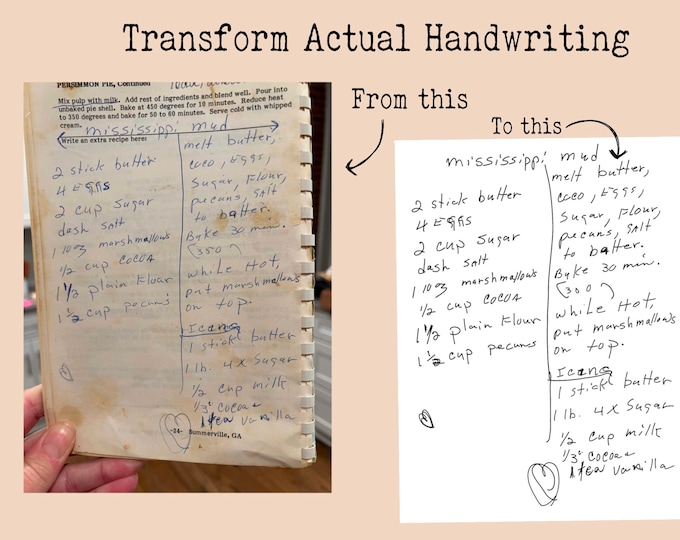 Transform Actual Handwriting
From this
To this
PERSIMMON PIE, Continued
Mix pulp with milk. Add rest of ingredients and blend well. Pour into
unbaked pie shell. Bake at 450 degrees for 10 minutes. Reduce heat
to 350 degrees and bake for 50 to 60 minutes. Serve cold with whipped
cream.
mississippi mud
Write an extra recipe here:
2 stick butter
4 EGGS
2 cup Sugar
dash salt
1 10oz marshmallows
1/2 cup COCOA
1 1/2 plain Flour
1 1/2 cup pecans
melt butter,
coco, EGGS,
Sugar, Flour,
pecans, salt
to batter.
Bake 30 min.
350
while Hot,
put marshmallows
on top.
Icing
1 stick butter
1 lb. 4x Sugar
1/2 cup milk
1/3 cocoa
1 tea vanilla
-24- Summerville, GA
mississippi mud
2 stick butter
4 EGGS
2 cup Sugar
dash salt
1 10oz marshmallows
1/2 cup COCOA
1 1/2 plain Flour
1 1/2 cup pecans
melt butter,
coco, EGGS,
Sugar, Flour,
pecans, salt
to batter.
Bake 30 min.
350
while Hot,
put marshmallows
on top.
Icing
1 stick butter
1 lb. 4x Sugar
1/2 cup milk
1/3 cocoa
1 tea vanilla